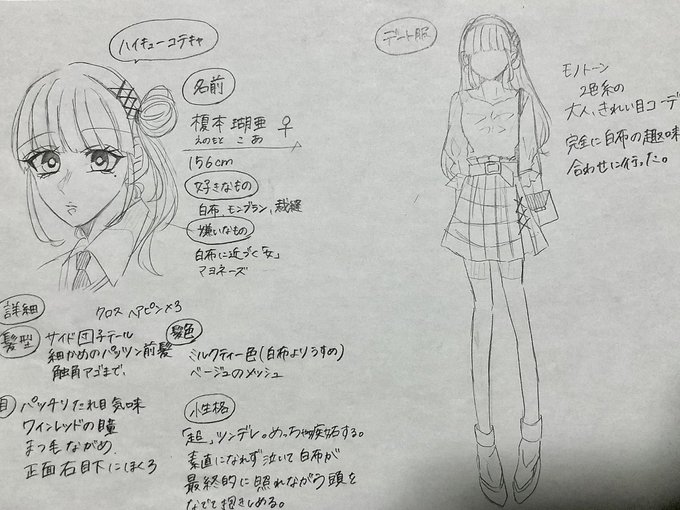 ハイキューコテキャ
名前
榎本 瑚亜 ♀
えのもと こあ
156cm
好きなもの
白布、モンブラン、裁縫
嫌いなもの
白布に近づく「女」
マヨネーズ
詳細
クロス ヘアピン×3
髪型
サイド団子テール
細かめのパッツン前髪
触角アゴまで、
髪色
ミルクティー色(白布よりうすめ)
ベージュのメッシュ
目
パッチリたれ目気味
ワインレッドの瞳
まつ毛ながめ
正面右目下にほくろ
性格
「超」ツンデレ。めっちゃ嫉妬する。
素直になれず泣いて白布が
最終的に照れながら頭を
なでて抱きしめる。
デート服
モノトーン
2色系の
大人、きれい目コーデ
完全に白布の趣味
合わせに行った。